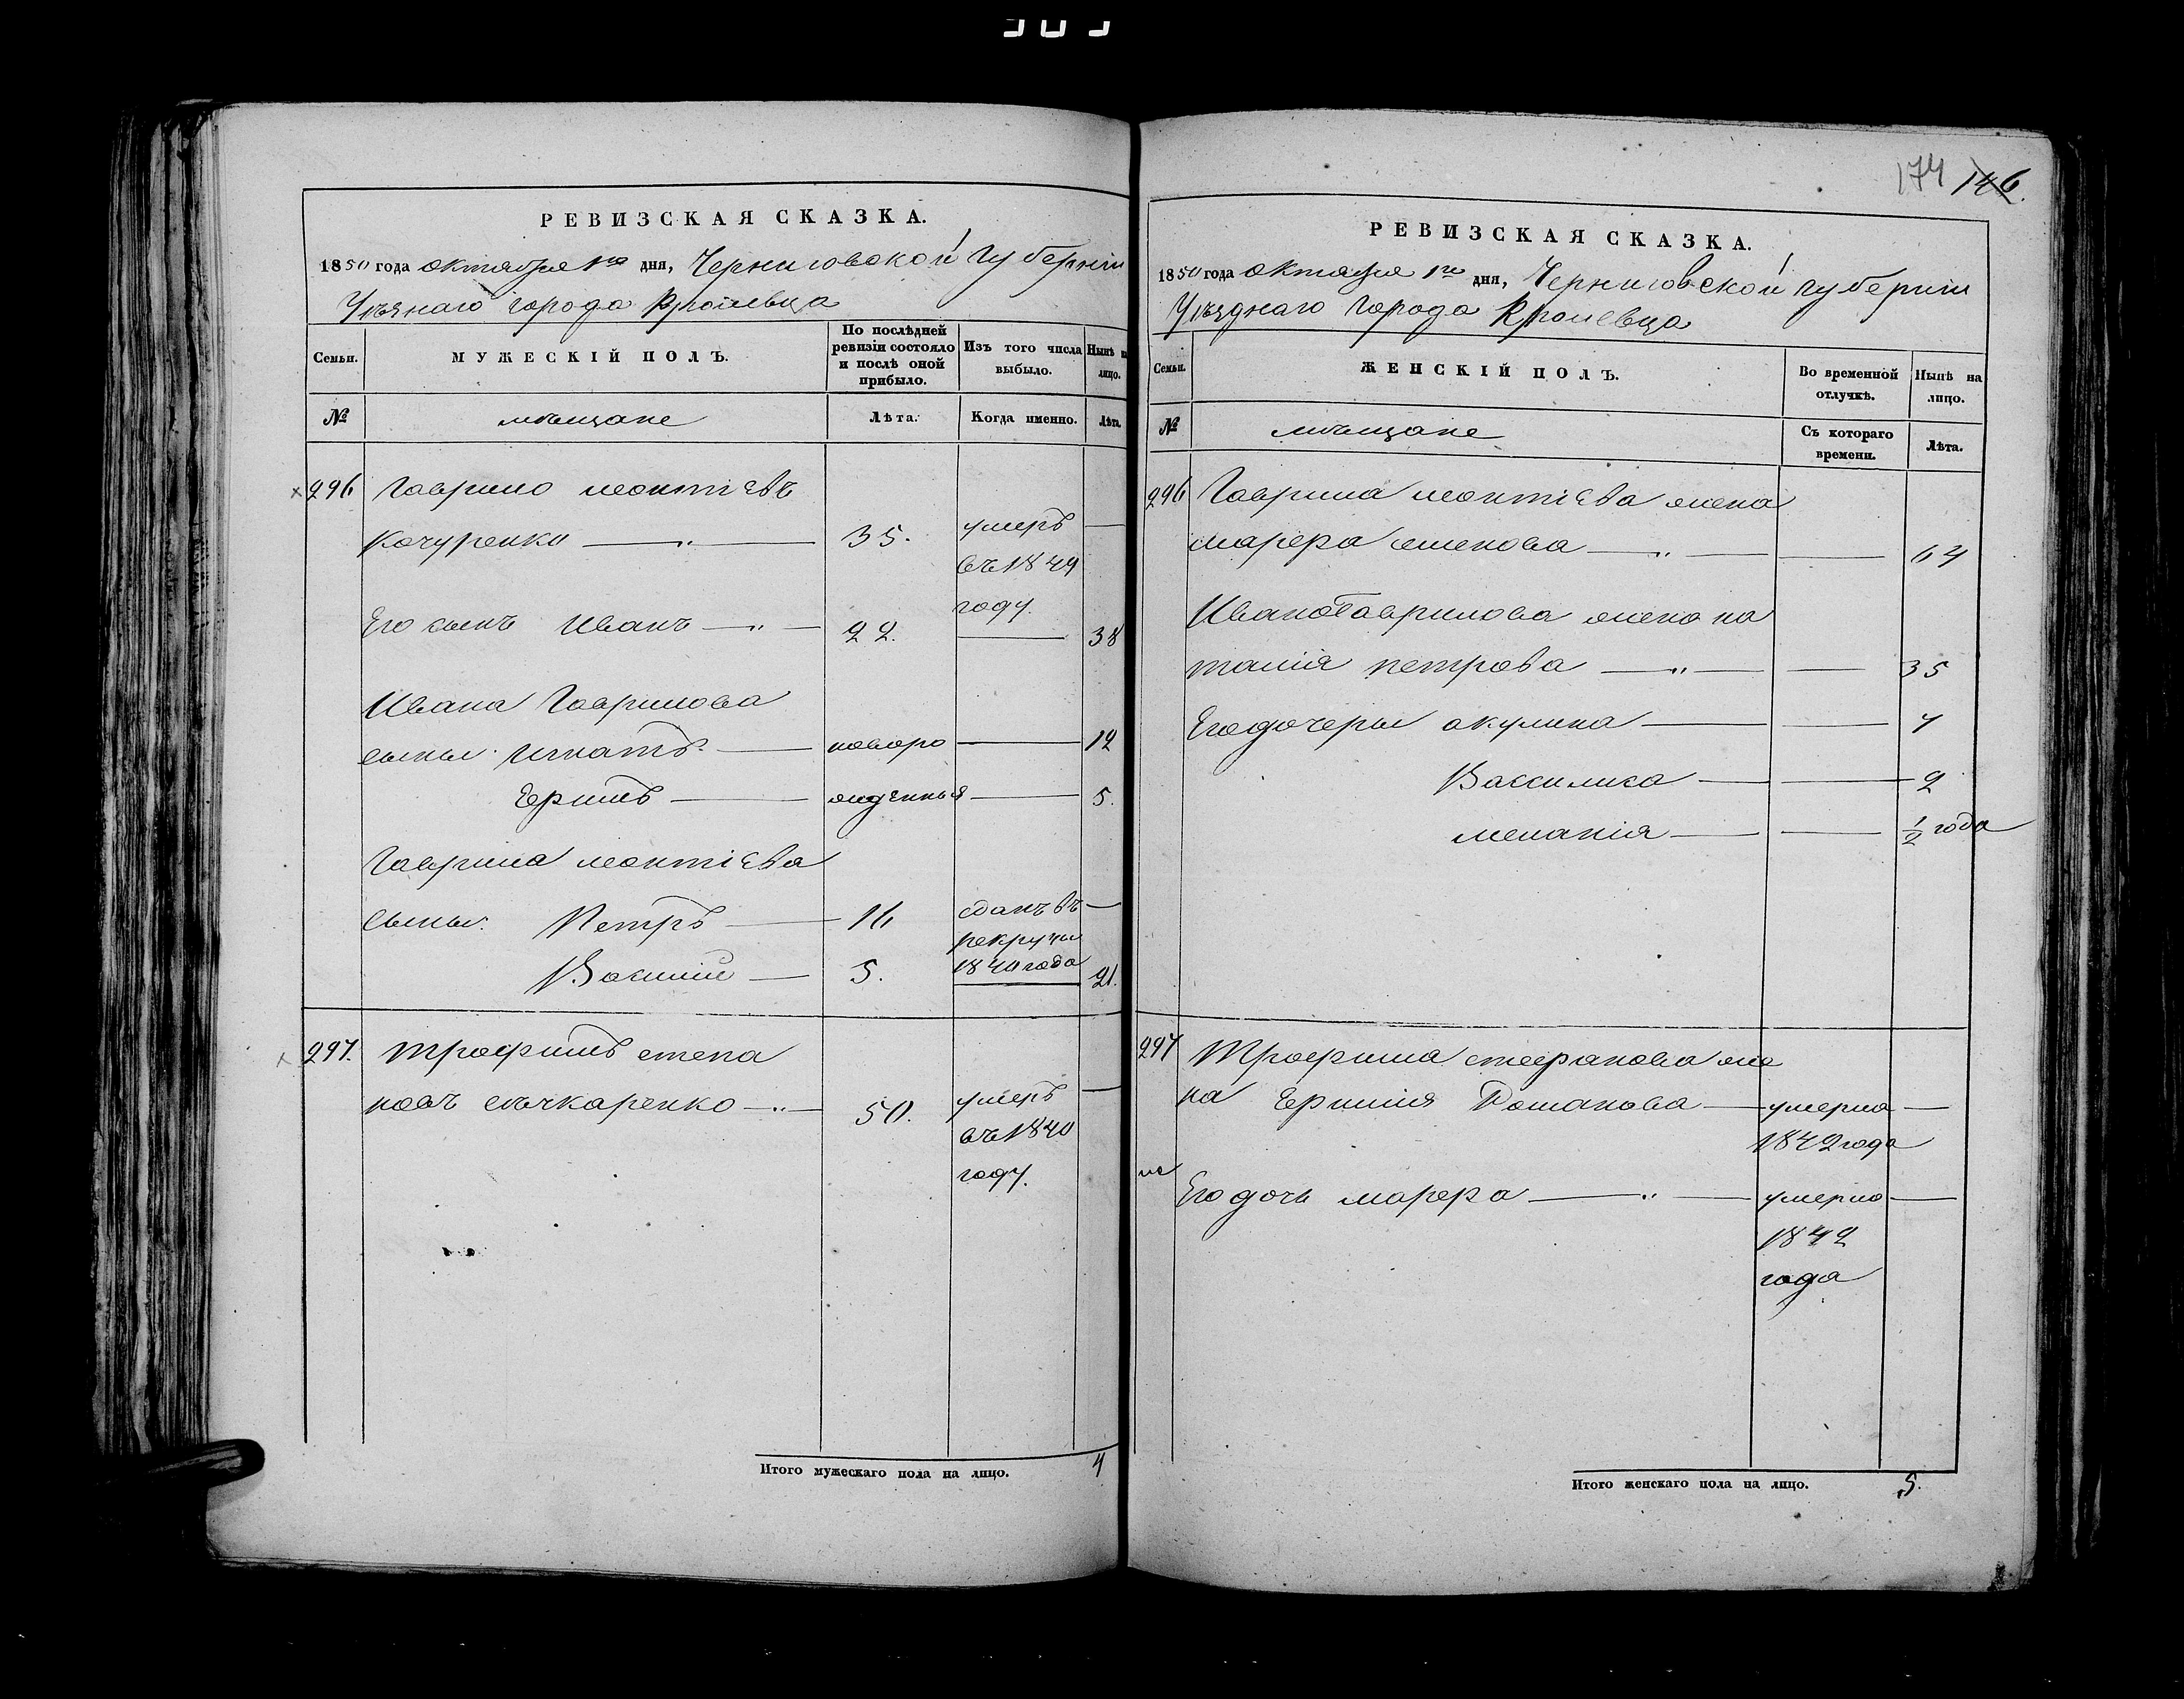 174 146.
РЕВИЗСКАЯ СКАЗКА.
1850 года октября 1го дня, Черниговской губерніи
Уѣзнаго города Кролевца
Семьи.
МУЖЕСКІЙ ПОЛЪ.
По послѣдней ревизіи состояло и послѣ оной прибыло.
Изъ того числа выбыло.
Нынѣ на лицо.
№
мѣщане
Лѣта.
Когда именно.
Лѣта.
296 Гаврило леонтіевъ
Кочуренко — „ — 35. умеръ —
въ 1849
году.
Его сынъ Иванъ — „ — 22. — 38
Ивана Гаврилова
сыны: Игнатъ — новоро — 12
Ефимъ — жденныя — 5.
Гаврила леонтіева
сыны: Петръ — 16 сданъ въ —
рекруты
1840 года
Василій — 5. — 21.
297. Трофимъ степа
новъ сѣчкаренко — „ — 50. умеръ —
въ 1840
году.
Итого мужескаго пола на лицо. 4
РЕВИЗСКАЯ СКАЗКА.
1850 года октября 1го дня, Черниговской губерніи
Уѣзднаго города Кролевца
Семьи.
ЖЕНСКІЙ ПОЛЪ.
Во временной отлучкѣ.
Нынѣ на лицо.
№
мѣщане
Съ котораго времени.
Лѣта.
296 Гаврила леонтіева жена
марфа семенова — „ — — 64
Ивана Гаврилова жена на
талія петрова — „ — — 35
Его дочеры акулина — — 7
Василиса — — 2
меланія — — 1/2 года
297 Трофима стефанова же
на Ефимія Романова — умерла —
1842 года
Его дочь марфа — „ — умерла —
1842
года
Итого женскаго пола на лицо. 5.